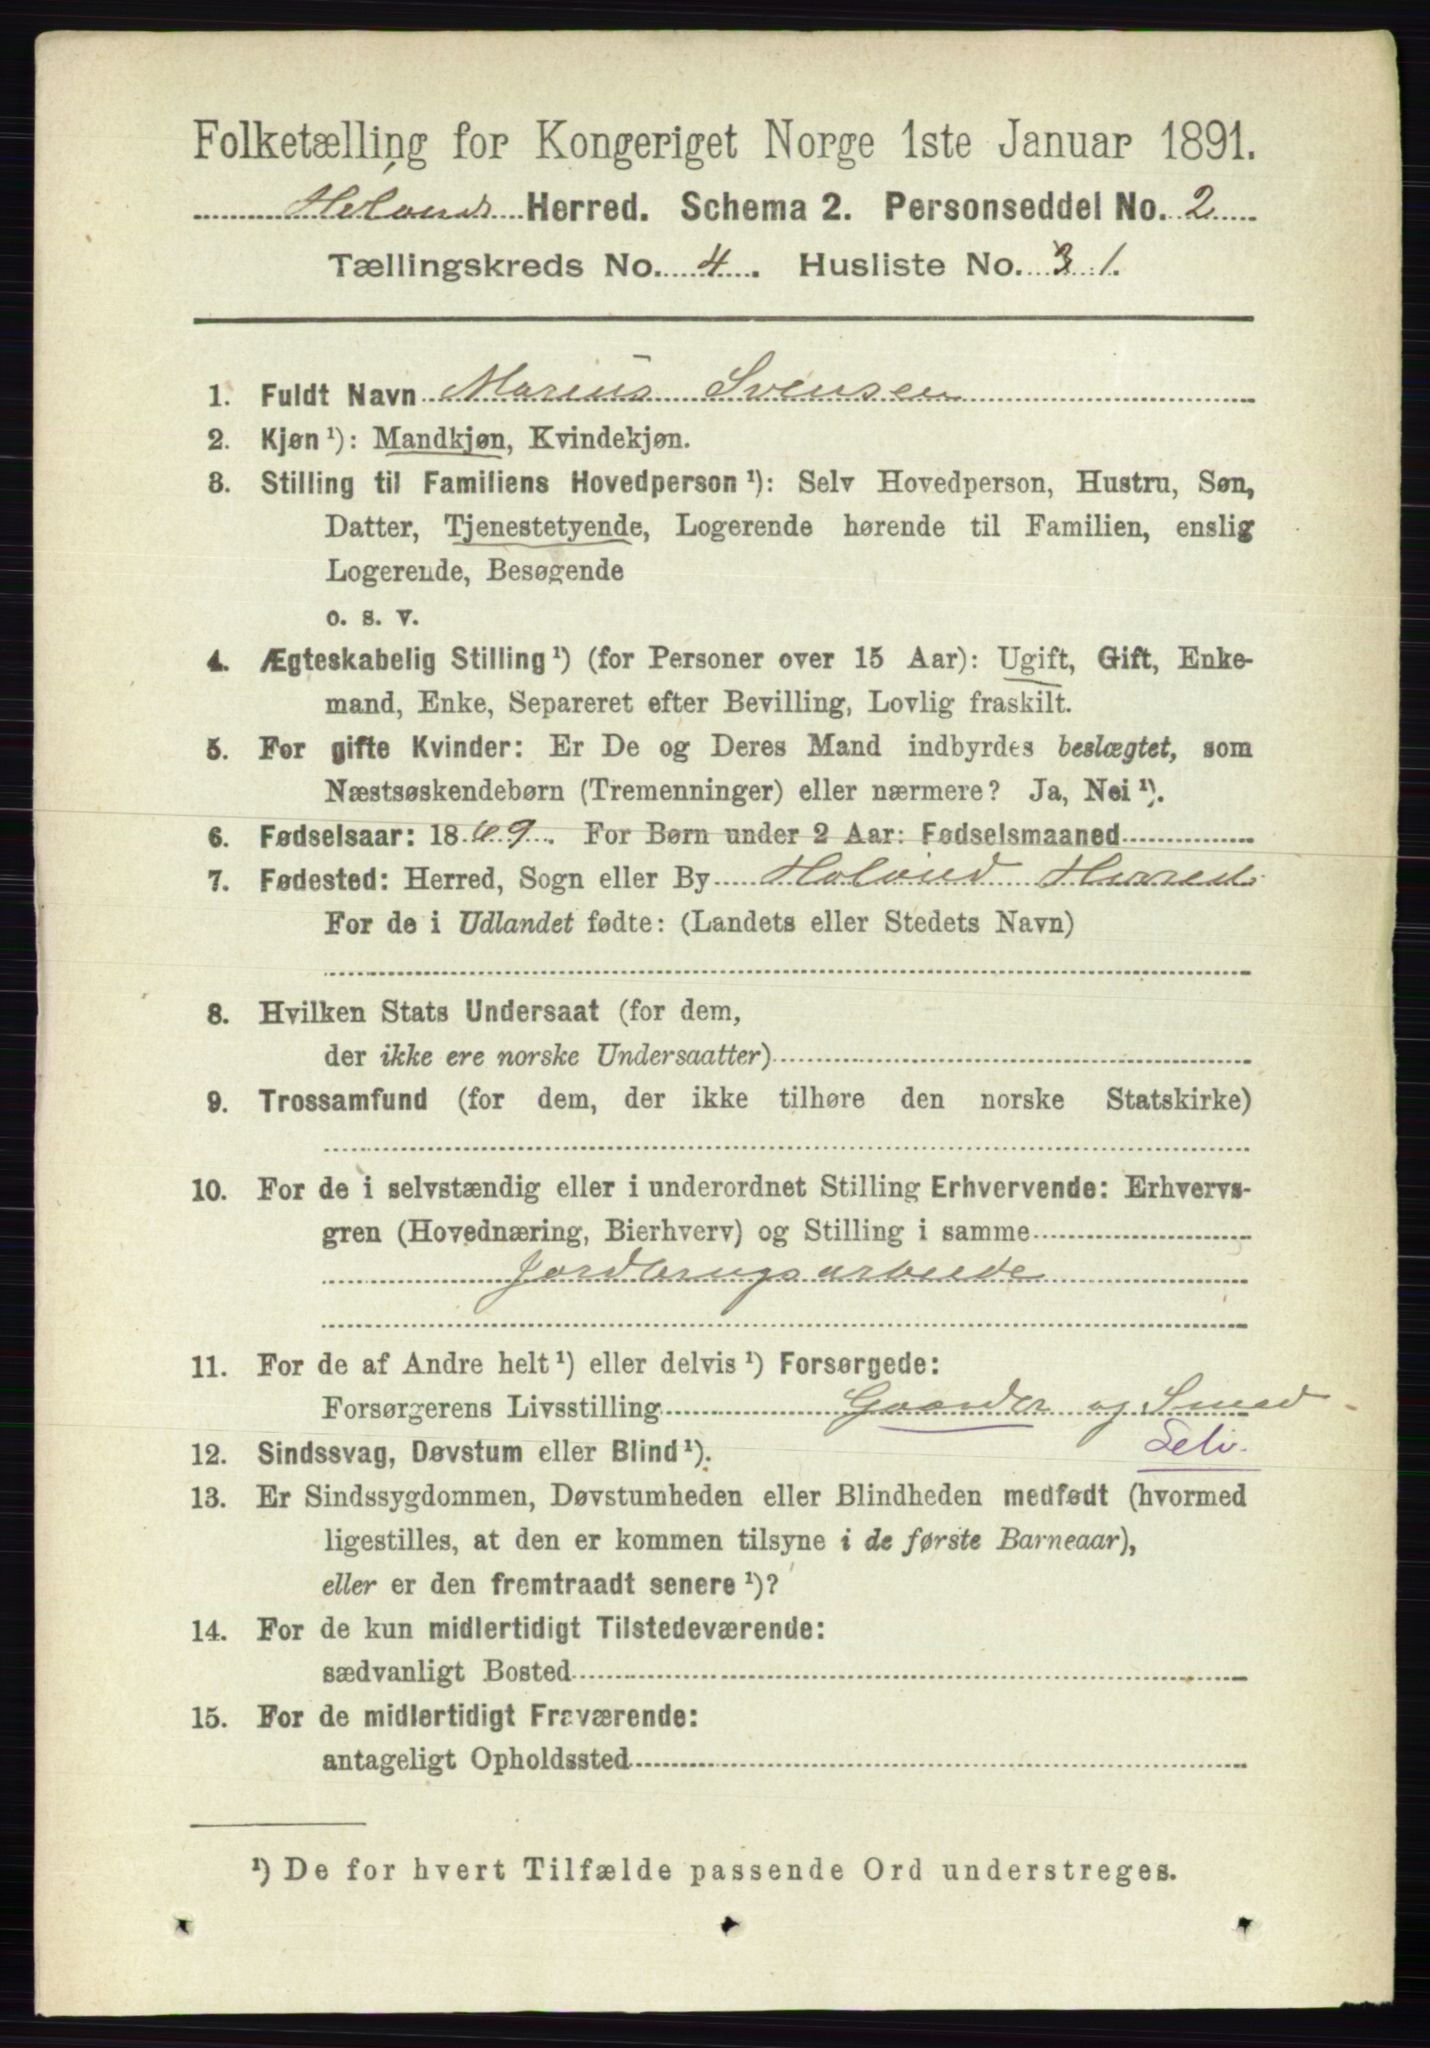 Folketælling for Kongeriget Norge 1ste Januar 1891.
Herred. Schema 2. Personseddel No. 2
Tællingskreds No. 4. Husliste No. 31.
1. Fuldt Navn Marius Svensen
2. Kjøn ¹): Mandkjøn, Kvindekjøn.
3. Stilling til Familiens Hovedperson ¹): Selv Hovedperson, Hustru, Søn,
Datter, Tjenestetyende, Logerende hørende til Familien, enslig
Logerende, Besøgende
o. s. v.
4. Ægteskabelig Stilling ¹) (for Personer over 15 Aar): Ugift, Gift, Enke-
mand, Enke, Separeret efter Bevilling, Lovlig fraskilt.
5. For gifte Kvinder: Er De og Deres Mand indbyrdes beslægtet, som
Næstsøskendebørn (Tremenninger) eller nærmere? Ja, Nei ¹).
6. Fødselsaar: 1869. For Børn under 2 Aar: Fødselsmaaned
7. Fødested: Herred, Sogn eller By Høland Herred
For de i Udlandet fødte: (Landets eller Stedets Navn)
8. Hvilken Stats Undersaat (for dem,
der ikke ere norske Undersaatter)
9. Trossamfund (for dem, der ikke tilhøre den norske Statskirke)
10. For de i selvstændig eller i underordnet Stilling Erhvervende: Erhvervs-
gren (Hovednæring, Bierhverv) og Stilling i samme
Jordbrugsarbeide
11. For de af Andre helt ¹) eller delvis ¹) Forsørgede:
Forsørgerens Livsstilling Gaardbr og Smed
12. Sindssvag, Døvstum eller Blind ¹). Selv.
13. Er Sindssygdommen, Døvstumheden eller Blindheden medfødt (hvormed
ligestilles, at den er kommen tilsyne i de første Barneaar),
eller er den fremtraadt senere ¹)?
14. For de kun midlertidigt Tilstedeværende:
sædvanligt Bosted
15. For de midlertidigt Fraværende:
antageligt Opholdssted
¹) De for hvert Tilfælde passende Ord understreges.